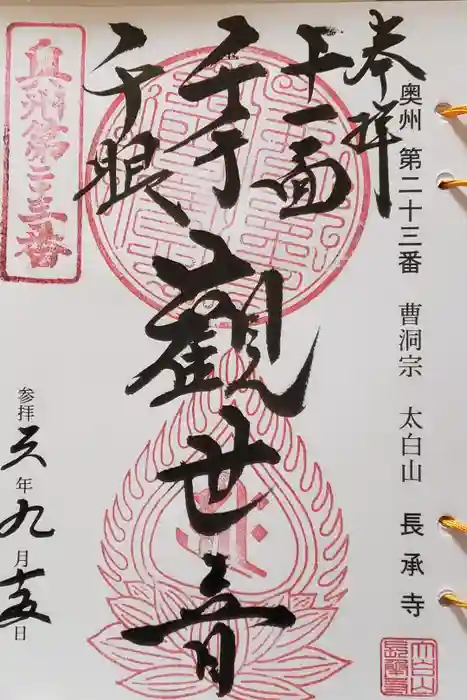 奥州 第二十三番 曹洞宗 太白山 長承寺
奉拝
十一面
千手
千眼
觀世音
奥州第二十三番
参拝 元年九月十五日